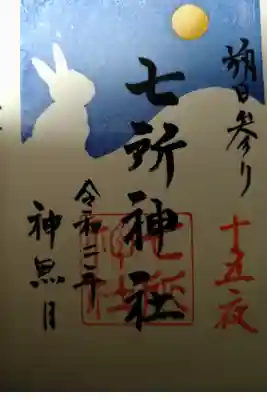 朔日参り
十五夜
七所神社
令和二年
神無月